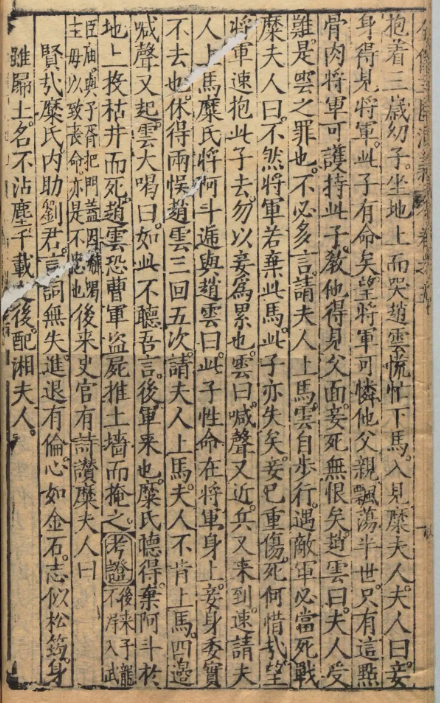 抱着三歲幼子。坐地上而哭。趙雲慌忙下馬。入見糜夫人。夫人曰。妾
身得見將軍。此子有命矣。望將軍可憐他父親飄蕩半世。只有這點
骨肉。將軍可護持此子。教他得見父面。妾死無恨矣。趙雲曰。夫人受
難。是雲之罪也。不必多言。請夫人上馬。雲自步行。遇敵軍必當死戰。
糜夫人曰。不然。將軍若棄此馬。此子亦失矣。妾已重傷。死何惜哉。望
將軍速抱此子去。勿以妾爲累也。雲曰。喊聲又近。兵又来到。速請夫
人上馬。糜氏將阿斗遞與趙雲曰。此子性命在將軍身上。妾身委實
不去也。休得兩悞。趙雲三回五次。請夫人上馬。夫人不肯上馬。四邊
喊聲又起。雲大喝曰。如此不聽吾言。後軍来也。糜氏聽得。棄阿斗於
地上。投枯井而死。趙雲恐曹軍盗屍。推土墻而掩之。考證後来子龍不岸入武
臣廟。與子胥把門。蓋因喝主母以致喪命。亦是不忠也後来史官有詩讃糜夫人曰
賢哉糜氏。内助劉君。言詞無失。進退有倫。心如金石。志似松筠。身
雖歸土。名不沾塵。千載後。配湘夫人。